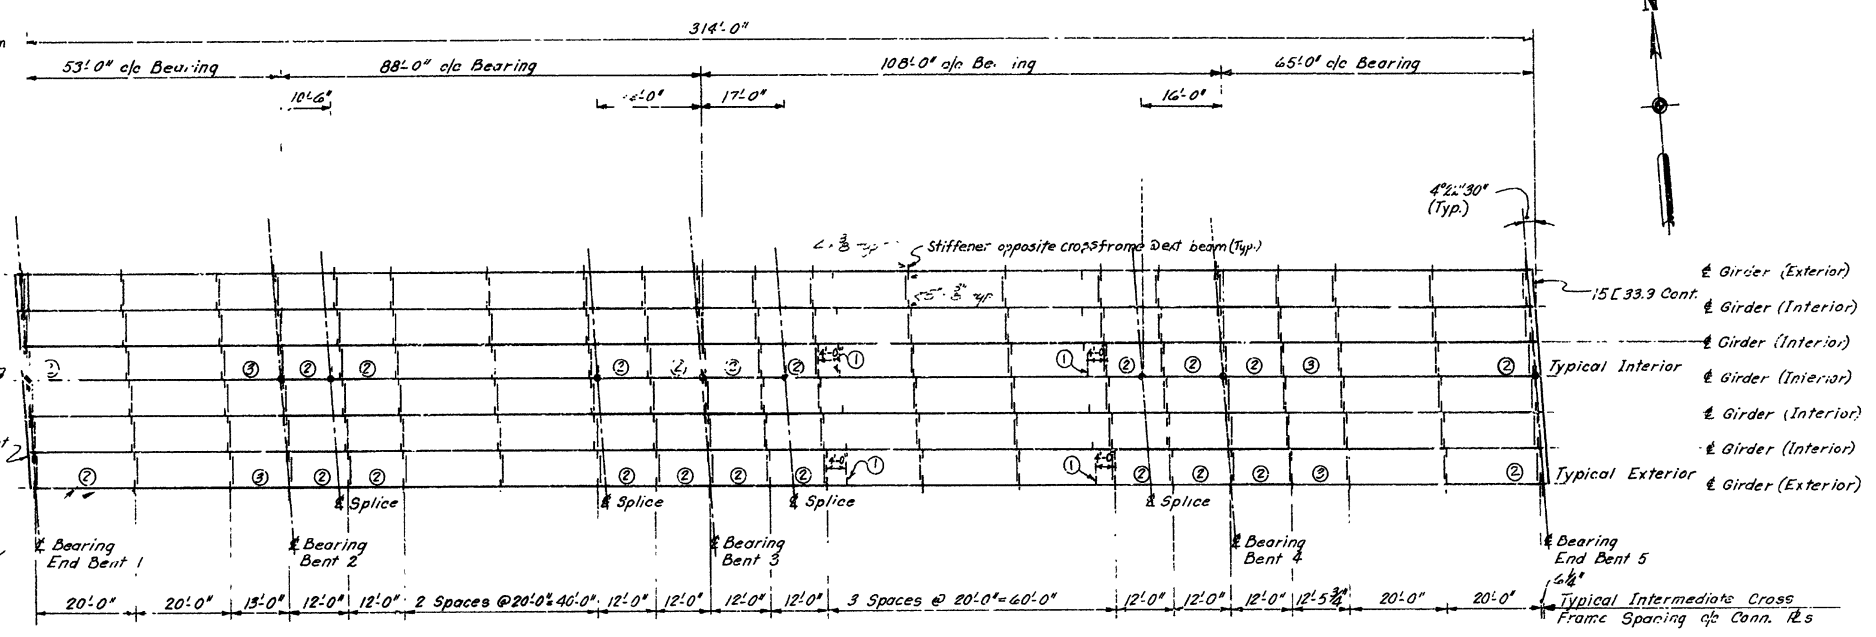 N
314'-0"
53'-0" c/c Bearing
88'-0" c/c Bearing
108'-0" c/c
65'-0" c/c Bearing
10'-6"
17'-0"
16'-0"
(Typ.)
Stiffener opposite crossframe
beam (Typ.)
15[33.9 Cont.
℄ Girder (Exterior)
℄ Girder (Interior)
℄ Girder (Interior)
℄ Girder (Interior)
℄ Girder (Interior)
℄ Girder (Interior)
℄ Girder (Exterior)
4'-0" ① ① 4'-0"
③ ② ② ② ② ② ② ② ③ ② Typical Interior
4'-0" ① ① 4'-0"
② ③ ② ② ② ② ② ② ② ② ② ③ ② Typical Exterior
℄ Splice ℄ Splice ℄ Splice ℄ Splice
℄ Bearing
End Bent 1
℄ Bearing
Bent 2
℄ Bearing
Bent 3
℄ Bearing
Bent 4
℄ Bearing
End Bent 5
6¼"
20'-0" 20'-0" 13'-0" 12'-0" 12'-0" 2 Spaces @ 20'-0"=40'-0" 12'-0" 12'-0" 12'-0" 12'-0" 3 Spaces @ 20'-0"=60'-0" 12'-0" 12'-0" 12'-0" 12'-5¾" 20'-0" 20'-0"
Typical Intermediate Cross
Frame Spacing c/c Conn. ℞s